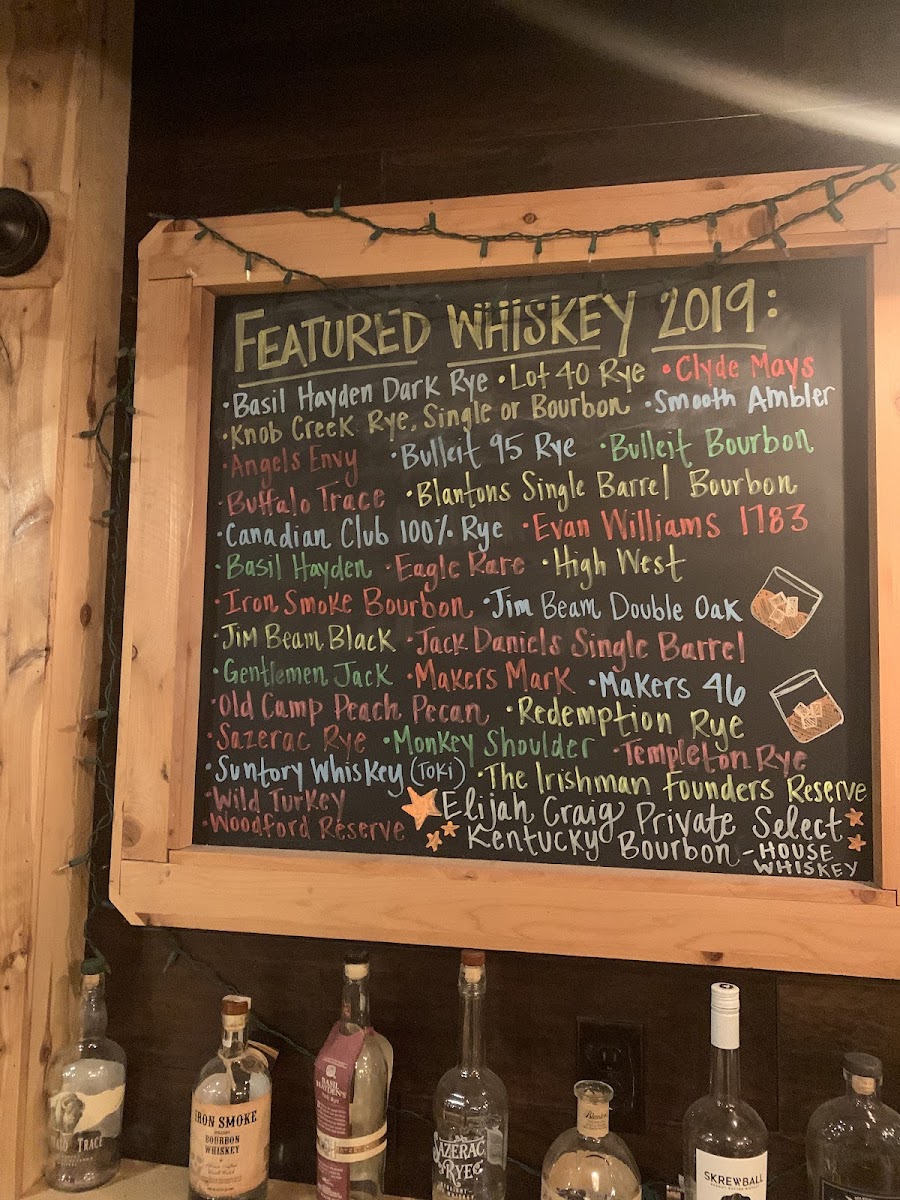 FEATURED WHISKEY 2019:
•Basil Hayden Dark Rye •Lot 40 Rye •Clyde Mays
•Knob Creek Rye, Single or Bourbon •Smooth Ambler
•Angels Envy •Bulleit 95 Rye •Bulleit Bourbon
•Buffalo Trace •Blantons Single Barrel Bourbon
•Canadian Club 100% Rye •Evan Williams 1783
•Basil Hayden •Eagle Rare •High West
•Iron Smoke Bourbon •Jim Beam Double Oak
•Jim Beam Black •Jack Daniels Single Barrel
•Gentlemen Jack •Makers Mark •Makers 46
•Old Camp Peach Pecan •Redemption Rye
•Sazerac Rye •Monkey Shoulder •Templeton Rye
•Suntory Whiskey (TOKI) •The Irishman Founders Reserve
•Wild Turkey
•Woodford Reserve
Elijah Craig Private Select
Kentucky Bourbon - HOUSE
WHISKEY
TRACE
IRON SMOKE
BOURBON
WHISKEY
BASIL
HAYDEN'S
SAZERAC
RYE
Blanton's
SKREWBALL